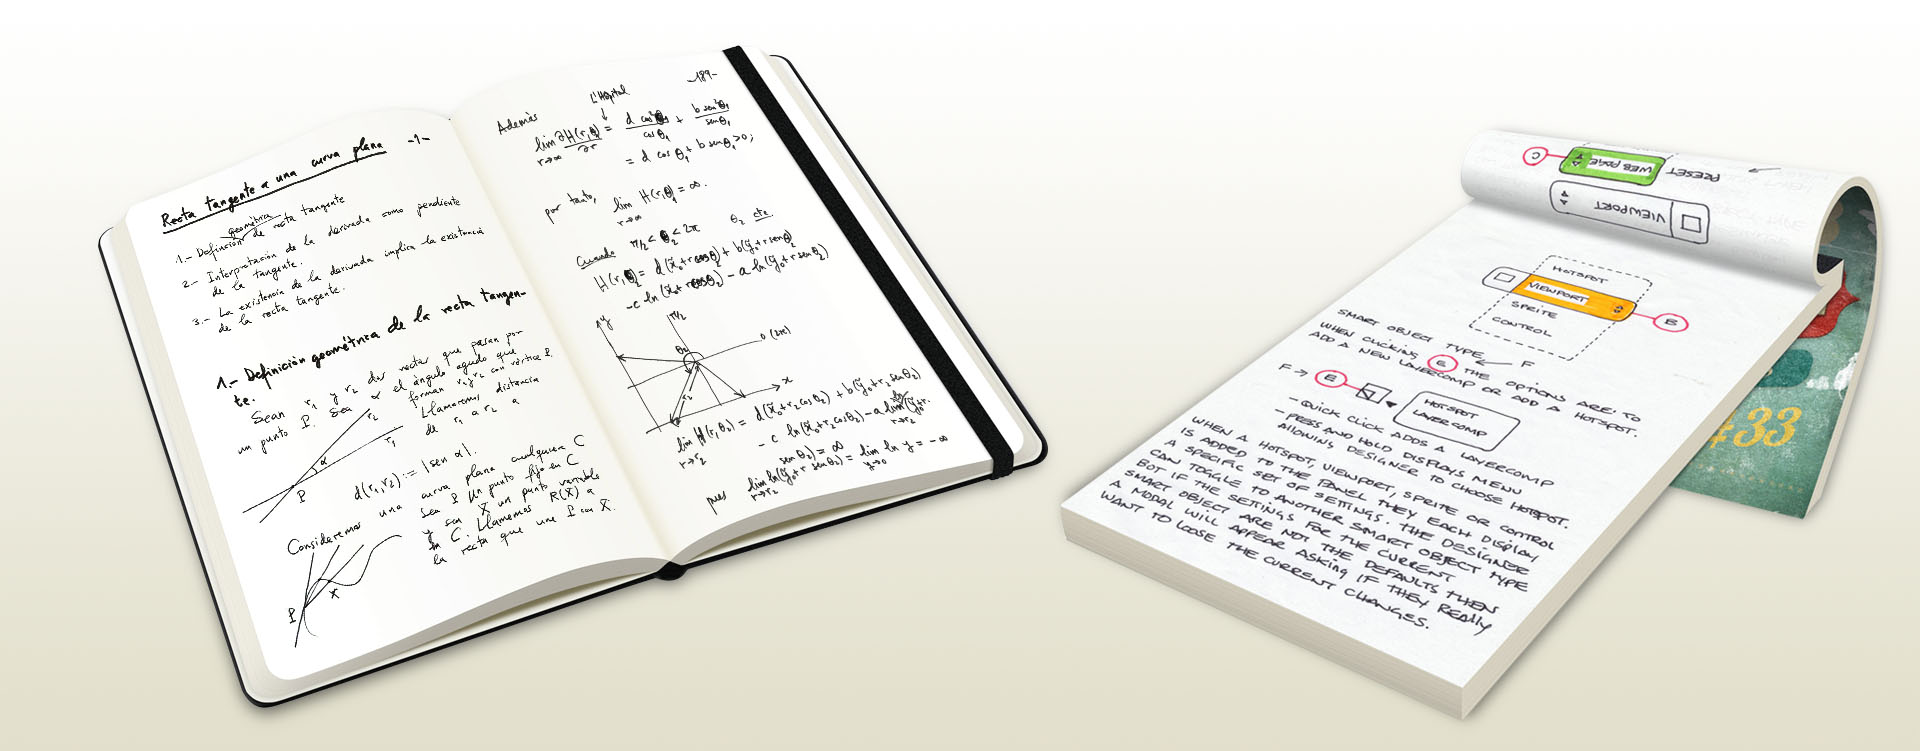 Recta tangente a una curva plana -1-
1.- Definición geométrica de recta tangente
2.- Interpretación de la derivada como pendiente
de la tangente.
3.- La existencia de la derivada implica la existencia
de la recta tangente.
1.- Definición geométrica de la recta tangen-
te.
Sean r₁ y r₂ dos rectas que pasan por
un punto P. Sea α el ángulo agudo que
forman r₁ y r₂ con vértice P.
Llamaremos distancia
de r₁ a r₂ a
r₂
r₁
α
P
d(r₁,r₂):= |sen α|.
Consideremos una curva plana cualquiera C
Sea P un punto fijo en C
y sea X un punto variable
en C. Llamemos R(X) a
la recta que une P con X.
P
X
-189-
Además
L'Hôpital
lim ∂H(r,θ₁)/∂r = d cos²θ₁/cos θ₁ + b sen²θ₁/sen θ₁
r→∞
= d cos θ₁ + b sen θ₁ > 0;
por tanto, lim H(r,θ₁) = ∞.
r→∞
Cuando π/2 < θ₂ < 2π θ₂ cte
H(r,θ₂) = d(x̃₀+r cosθ₂) + b(ỹ₀+r senθ₂)
-c ln(x̃₀+r cosθ₂) - a ln(ỹ₀+r senθ₂)
y
π/2
θ₂
0 (2π)
r₂
x
lim H(r,θ₂) = d(x̃₀+r₂ cosθ₂) + b(ỹ₀+r₂ senθ₂)
r→r₂
- c ln(x̃₀+r₂ cosθ₂) - a lim ln(ỹ₀+r·
r→r₂
senθ₂) = ∞
pues lim ln(ỹ₀+r senθ₂) = lim ln y = -∞
r→r₂ y→0
C
WEB PAGE
PRESET
VIEWPORT
HOTSPOT
VIEWPORT
SPRITE
CONTROL
B
SMART OBJECT TYPE
F
WHEN CLICKING E THE OPTIONS ARE: TO
ADD A NEW LAYERCOMP OR ADD A HOTSPOT.
F → E
HOTSPOT
LAYERCOMP
- QUICK CLICK ADDS A LAYERCOMP
- PRESS AND HOLD DISPLAYS MENU
ALLOWING DESIGNER TO CHOOSE HOTSPOT.
WHEN A HOTSPOT, VIEWPORT, SPRITE OR CONTROL
IS ADDED TO THE PANEL THEY EACH DISPLAY
A SPECIFIC SET OF SETTINGS. THE DESIGNER
CAN TOGGLE TO ANOTHER SMART OBJECT TYPE
BUT IF THE SETTINGS FOR THE CURRENT
SMART OBJECT ARE NOT THE DEFAULTS THEN
A MODAL WILL APPEAR ASKING IF THEY REALLY
WANT TO LOOSE THE CURRENT CHANGES.
#33